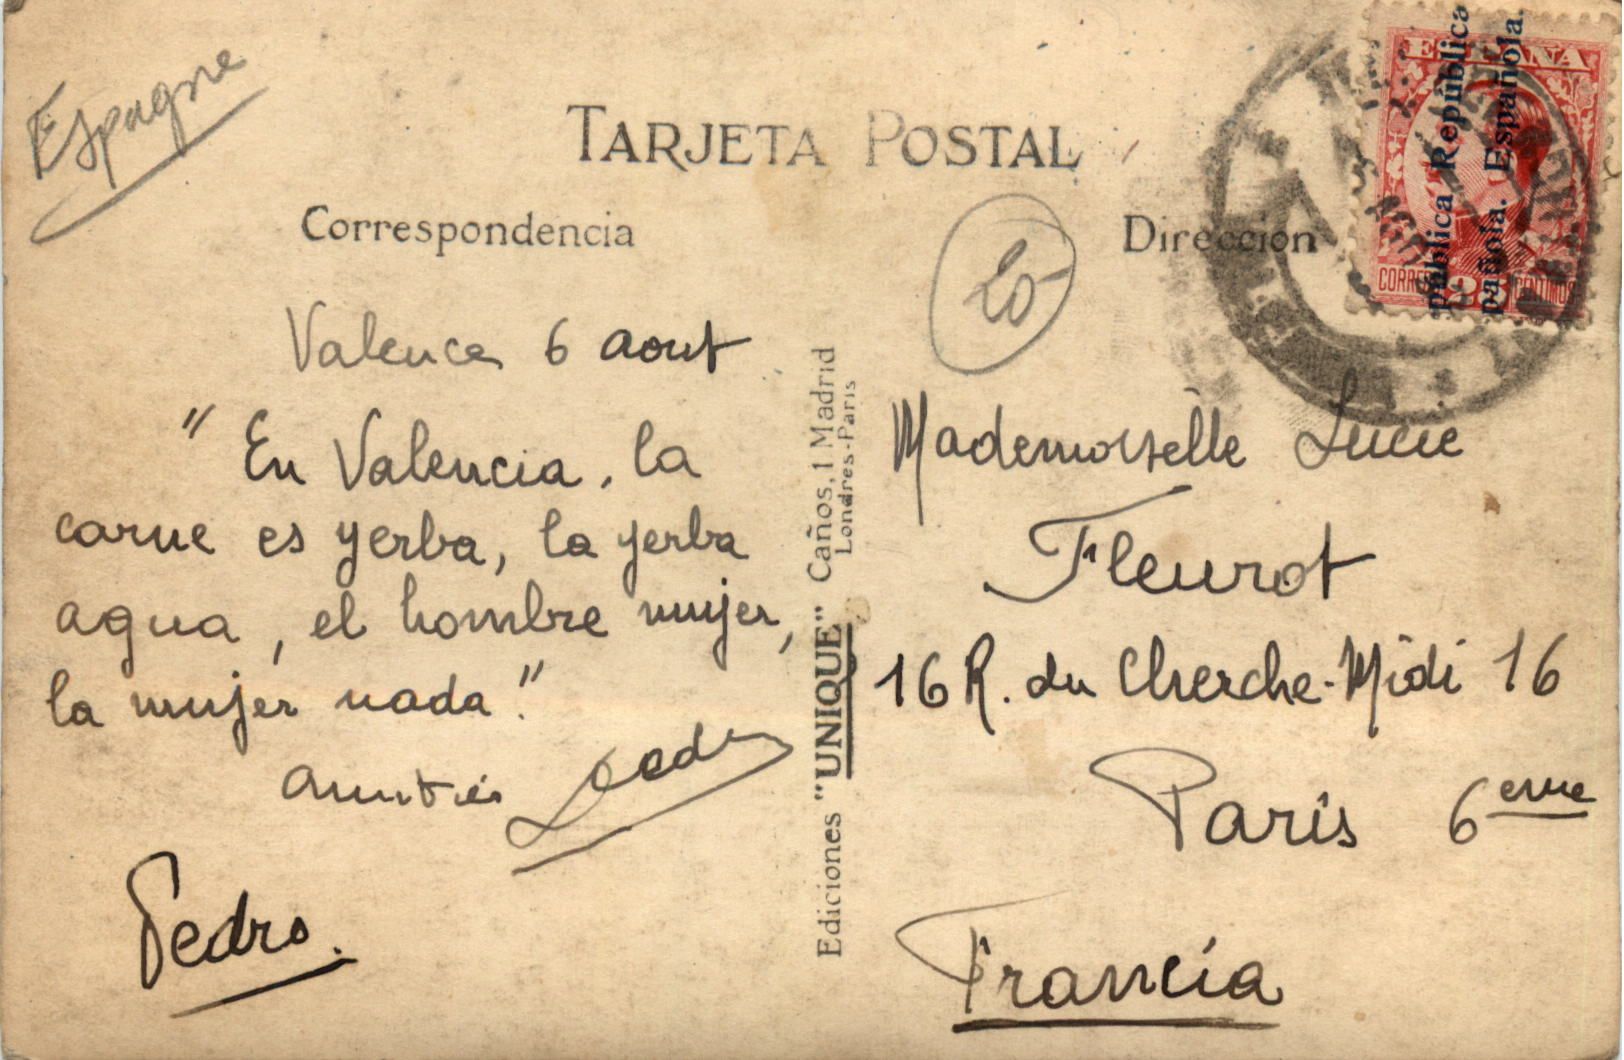 Espagne
TARJETA POSTAL
Correspondencia
Dirección
20
ESPAÑA
República
Española.
pública
pañola.
CORREOS 25 CENTIMOS
Valence 6 aout
" En Valencia, la
carne es yerba, la yerba
agua, el hombre mujer,
la mujer nada."
amitiés
Pedro.
Ediciones "UNIQUE" Caños, 1 Madrid
Londres-Paris
Mademoiselle Lucie
Fleurot
16 R. du Cherche-Midi 16
Paris 6eme
Francia